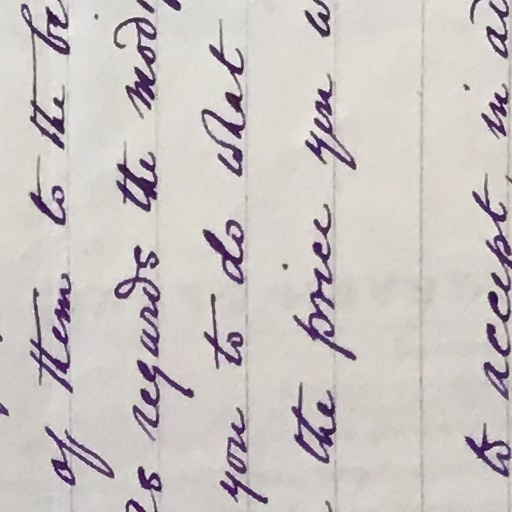 of them to the
regards the
you to do what
the price you
to accept, in